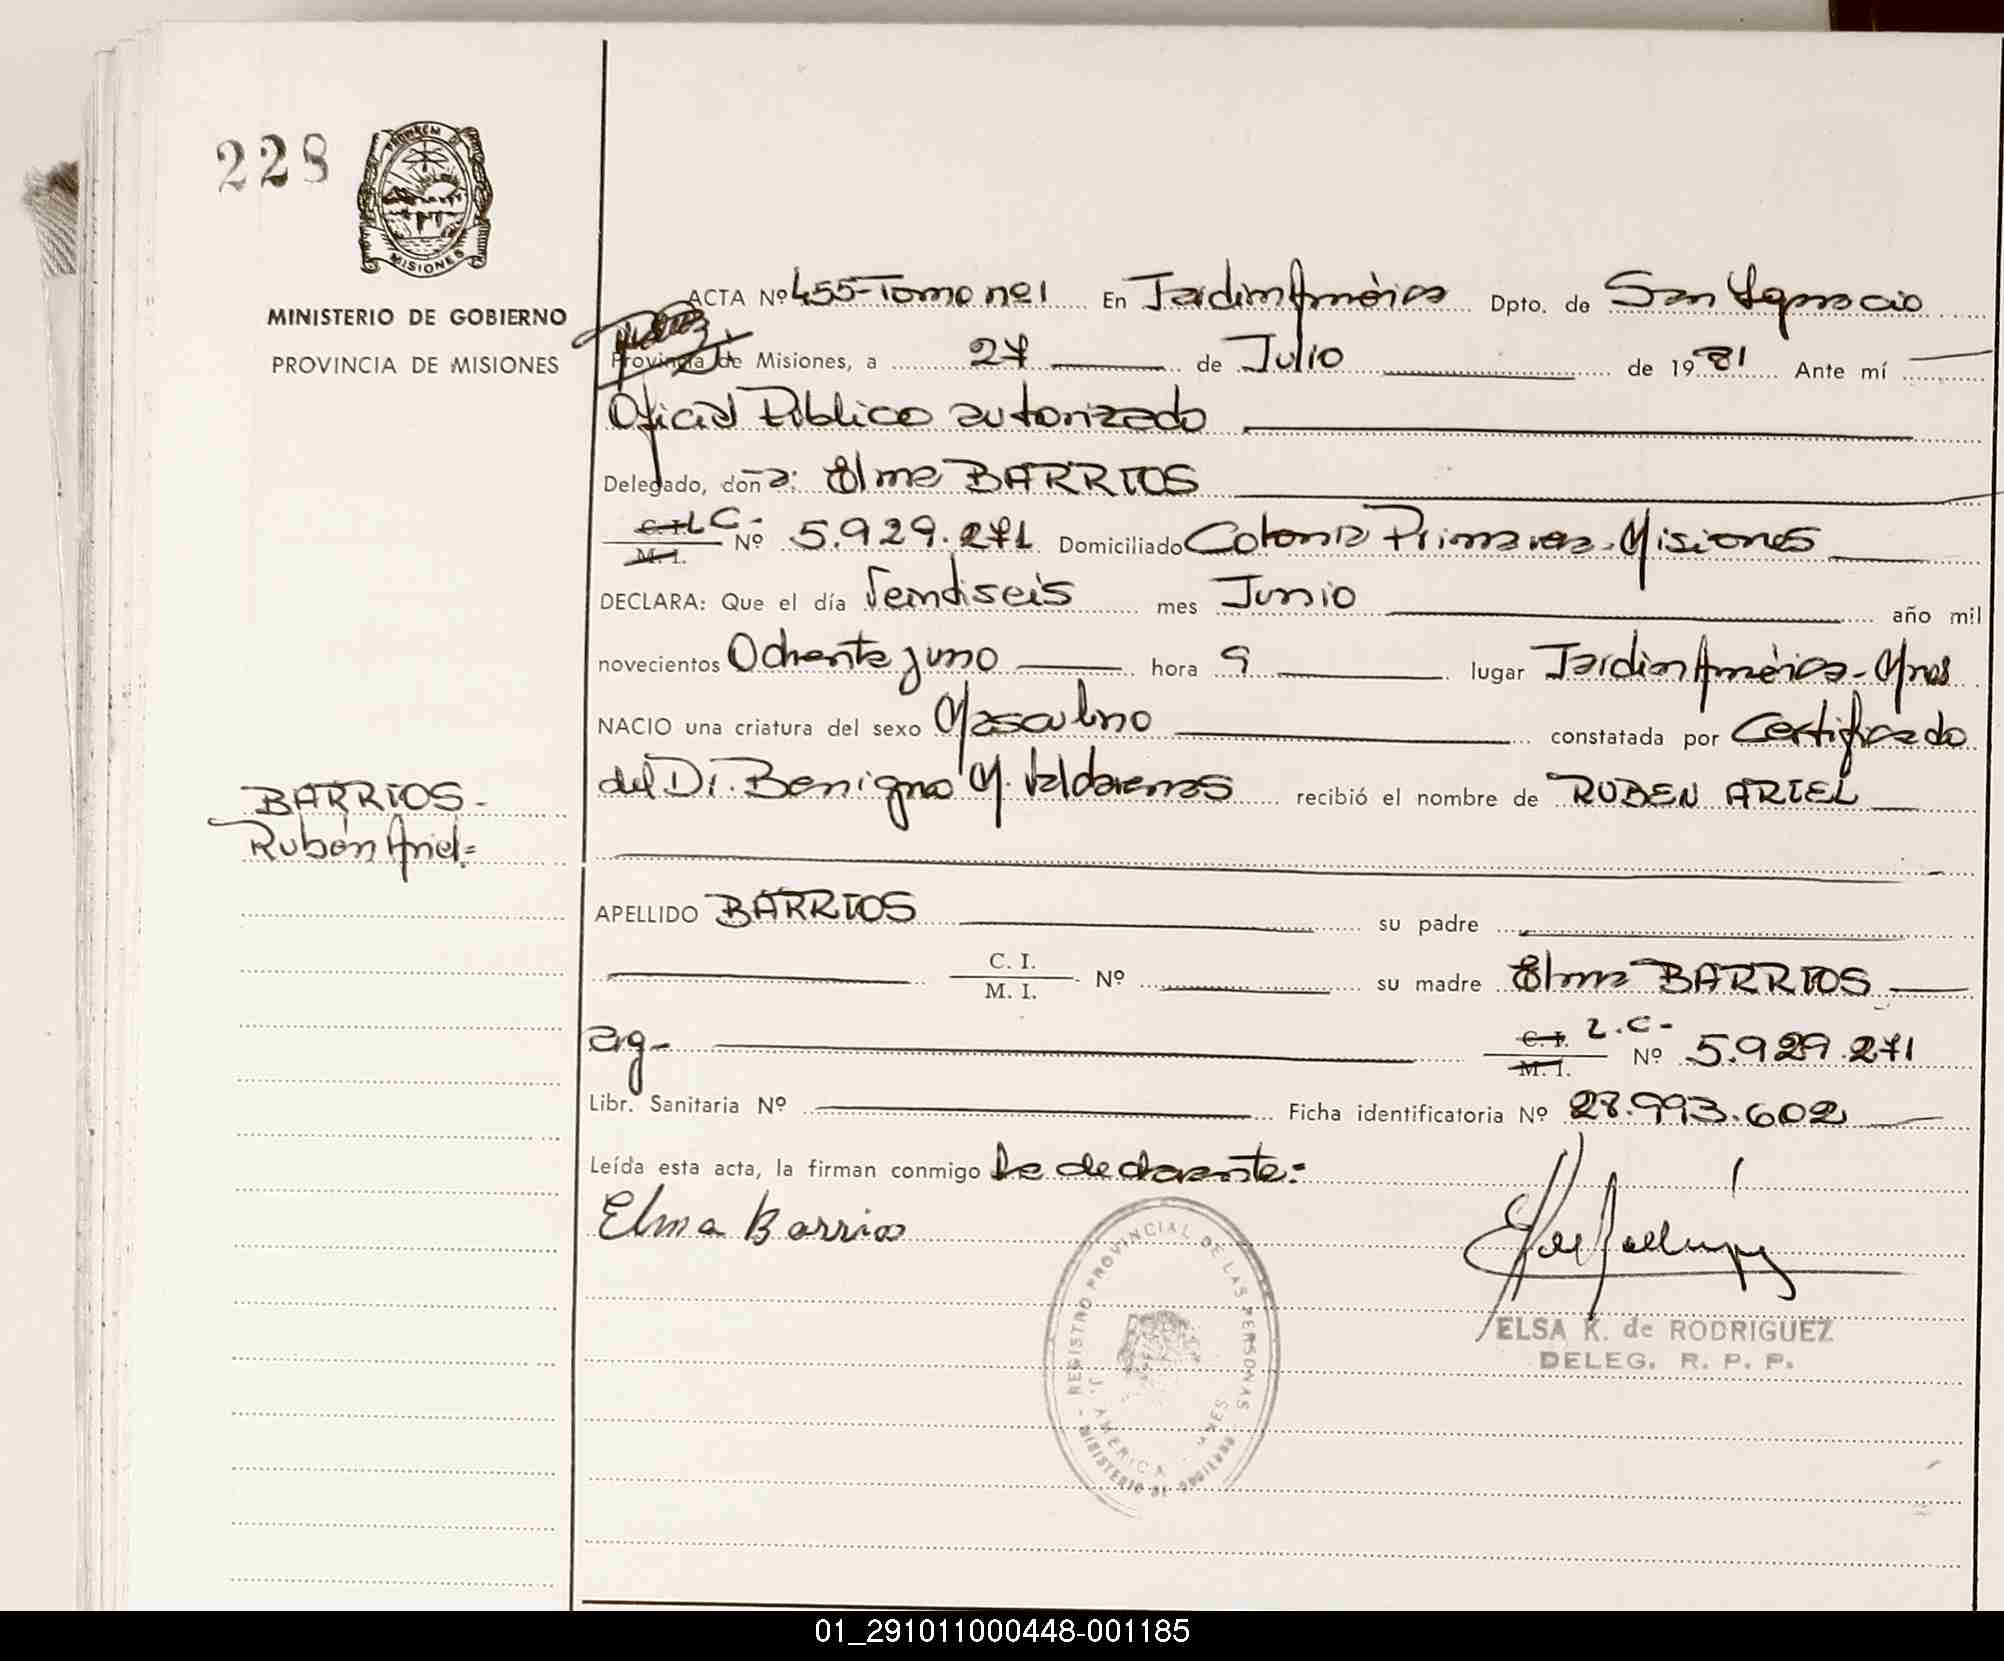 228
PROVINCIA DE
MISIONES
MINISTERIO DE GOBIERNO
PROVINCIA DE MISIONES
BARRIOS-
Rubén Ariel=
ACTA Nº 455-Tomo nº1 En Jardin América Dpto. de San Ignacio
Provincia de Misiones, a 27 de Julio de 1981 Ante mí
Oficial Público autorizado
Delegado, don a: Elma BARRIOS
C. I. L C-
M. I. Nº 5.929.271 Domiciliado Colonia Primavera-Misiones
DECLARA: Que el día Veintiseis mes Junio año mil
novecientos Ochenta y uno hora 9 lugar Jardin América-Mnes
NACIO una criatura del sexo Masculino constatada por Certificado
del Dr. Benigno M. Valdarenas recibió el nombre de RUBEN ARIEL
APELLIDO BARRIOS su padre
C. I.
M. I. Nº su madre Elma BARRIOS
arg- C. I. L.C-
M. I. Nº 5.929.271
Libr. Sanitaria Nº Ficha identificatoria Nº 28.993.602
Leída esta acta, la firman conmigo la declarante:
Elma Barrios
REGISTRO PROVINCIAL DE LAS PERSONAS
J. AMERICA - MNES
- MINISTERIO DE GOBIERNO
ELSA K. de RODRIGUEZ
DELEG. R. P. P.
01_291011000448-001185